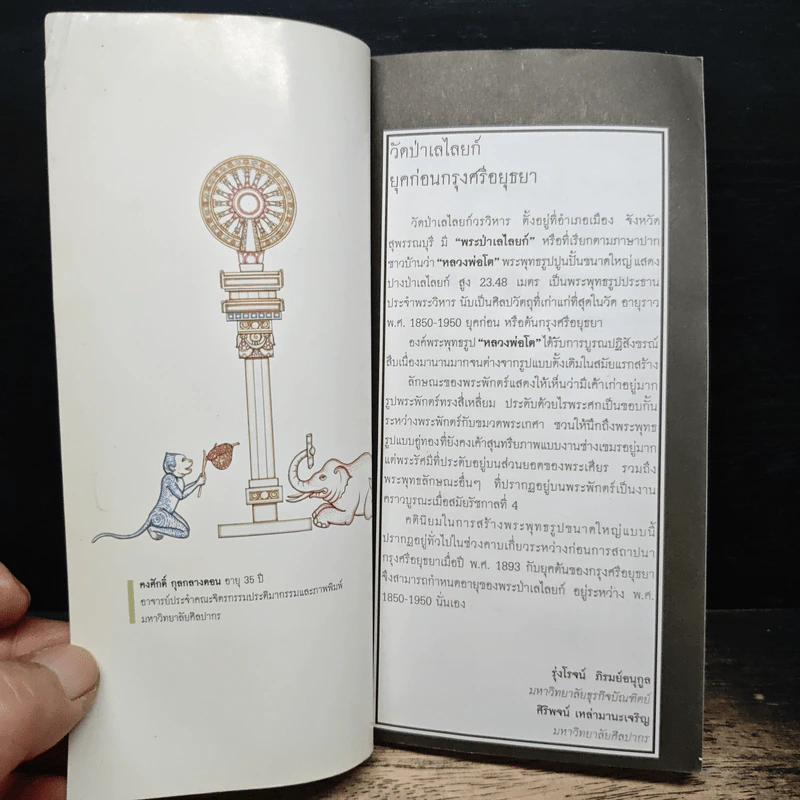 คงศักดิ์ กุลกลางดอน อายุ 35 ปี
อาจารย์ประจำคณะจิตรกรรมประติมากรรมและภาพพิมพ์
มหาวิทยาลัยศิลปากร
วัดป่าเลไลยก์
ยุคก่อนกรุงศรีอยุธยา
วัดป่าเลไลยก์วรวิหาร ตั้งอยู่ที่อำเภอเมือง จังหวัด
สุพรรณบุรี มี “พระป่าเลไลยก์” หรือที่เรียกตามภาษาปาก
ชาวบ้านว่า “หลวงพ่อโต” พระพุทธรูปปูนปั้นขนาดใหญ่ แสดง
ปางป่าเลไลยก์ สูง 23.48 เมตร เป็นพระพุทธรูปประธาน
ประจำพระวิหาร นับเป็นศิลปวัตถุที่เก่าแก่ที่สุดในวัด อายุราว
พ.ศ. 1850-1950 ยุคก่อน หรือต้นกรุงศรีอยุธยา
องค์พระพุทธรูป “หลวงพ่อโต” ได้รับการบูรณปฏิสังขรณ์
สืบเนื่องมานานมากจนต่างจากรูปแบบดั้งเดิมในสมัยแรกสร้าง
ลักษณะของพระพักตร์แสดงให้เห็นว่ามีเค้าเก่าอยู่มาก
รูปพระพักตร์ทรงสี่เหลี่ยม ประดับด้วยไรพระศกเป็นขอบกั้น
ระหว่างพระพักตร์กับขมวดพระเกศา ชวนให้นึกถึงพระพุทธ
รูปแบบอู่ทองที่ยังคงเค้าสุนทรียภาพแบบงานช่างเขมรอยู่มาก
แต่พระรัศมีที่ประดับอยู่บนส่วนยอดของพระเศียร รวมถึง
พระพุทธลักษณะอื่นๆ ที่ปรากฏอยู่บนพระพักตร์เป็นงาน
คราวบูรณะเมื่อสมัยรัชกาลที่ 4
คตินิยมในการสร้างพระพุทธรูปขนาดใหญ่แบบนี้
ปรากฏอยู่ทั่วไปในช่วงคาบเกี่ยวระหว่างก่อนการสถาปนา
กรุงศรีอยุธยาเมื่อปี พ.ศ. 1893 กับยุคต้นของกรุงศรีอยุธยา
จึงสามารถกำหนดอายุของพระป่าเลไลยก์ อยู่ระหว่าง พ.ศ.
1850-1950 นั่นเอง
รุ่งโรจน์ ภิรมย์อนุกูล
มหาวิทยาลัยธุรกิจบัณฑิตย์
ศิริพจน์ เหล่ามานะเจริญ
มหาวิทยาลัยศิลปากร